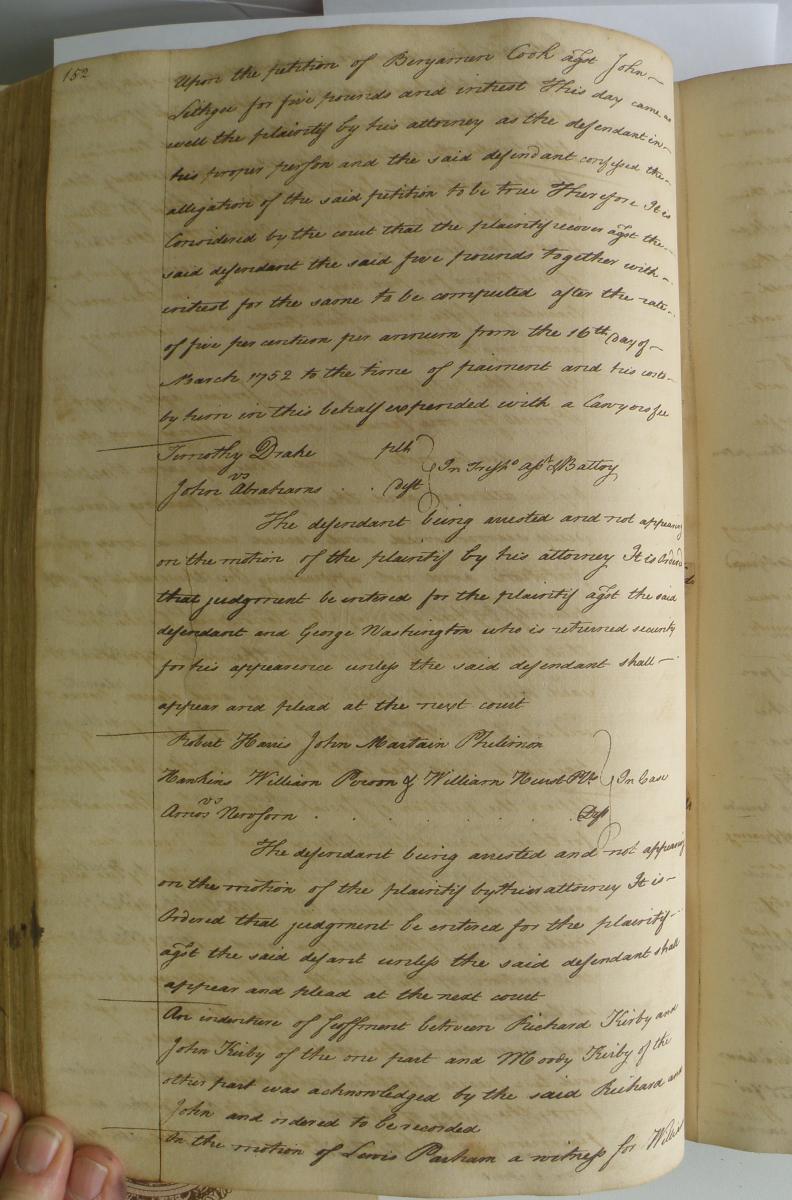 152
Upon the petition of Benjamen Cook agst John
Lithgoe for five pounds and intrest This day came as
well the plaintif by his attorney as the defendant in
his proper person and the said defendant confessed the
allegation of the said petition to be true Therefore It is
Considered by the court that the plaintif recover agst the
said defendant the said five pounds together with
intrest for the same to be computed after the rate
of five per centum per annum from the 16th day of
March 1752 to the time of paiment and his costs
by him in this behalf expended with a Lawyers fee
Timothy Drake plt
vs In Tresps Asst & Battry
John Abrahams . . Deft
The defendant being arrested and not appearing
on the motion of the plaintif by his attorney It is Ordered
that judgment be entered for the plaintif agst the said
defendant and George Washington who is returned security
for his appearence unless the said defendant shall
appear and plead at the next court
Robert Harris John Martain Philimon
Hawkins William Person & William Hurst Plts In Case
vs
Amos Newsom . . . . . Deft
The defendant being arrested and not appearing
on the motion of the plaintif by their attorney It is
Ordered that judgment be entered for the plaintif
agst the said defant unless the said defendant shall
appear and plead at the next court
An indenture of feoffment between Richard Kirby and
John Kirby of the one part and Moody Kirby of the
other part was acknowledged by the said Richard and
John and ordered to be recorded
On the motion of Lewis Parham a witness for